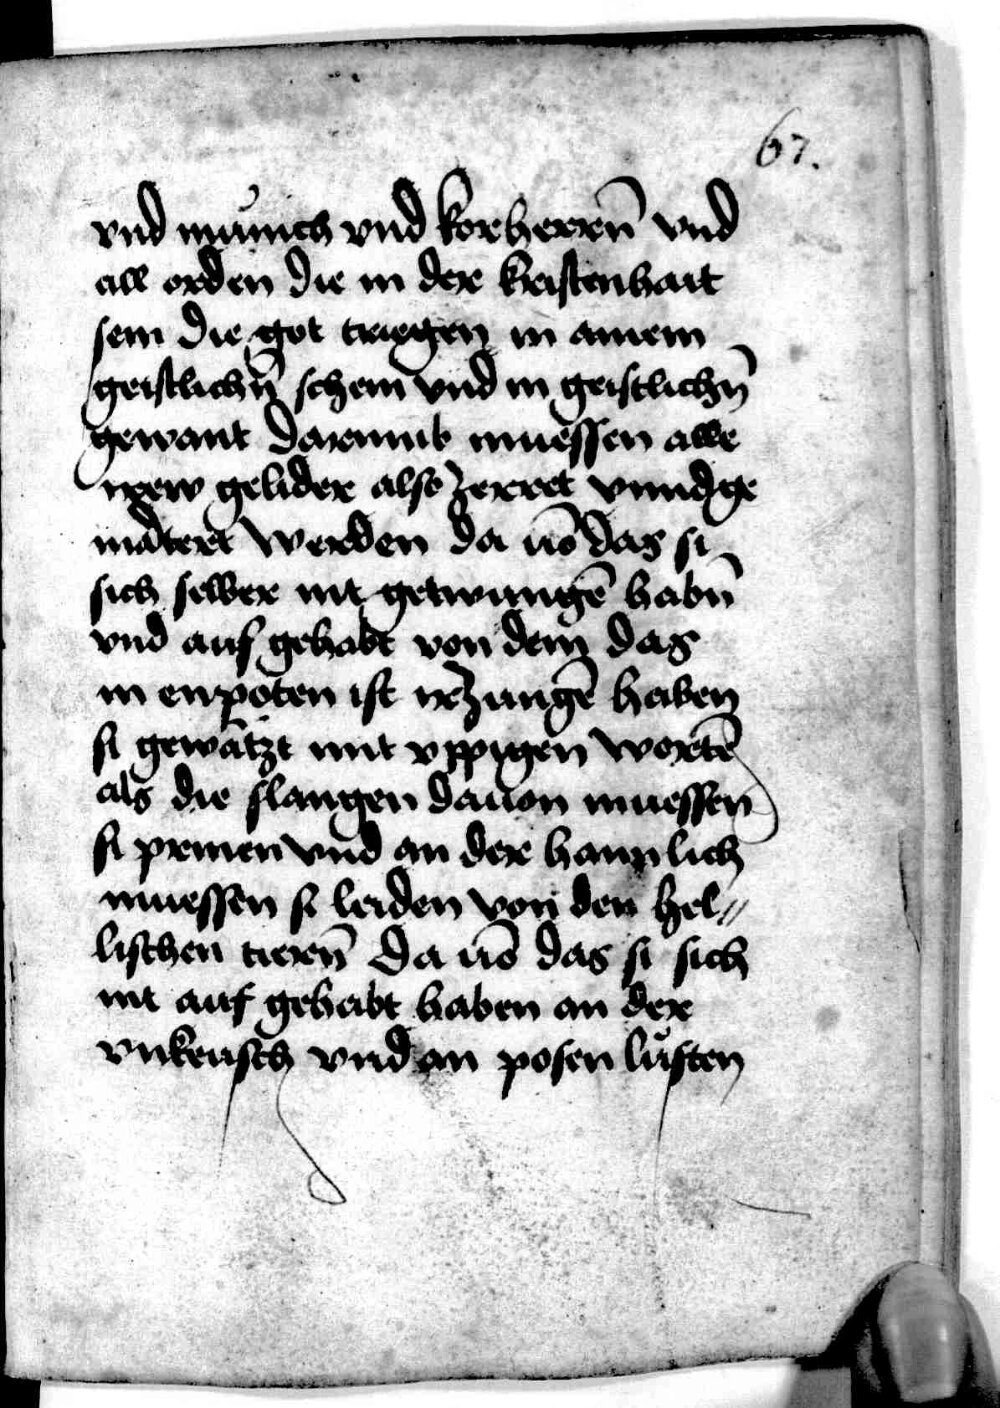 67.
vnd münich vnd korherrn̄ vnd
all orden die in der kristenhait
sein die got triegen in ainem
geistlichn̄ schein vnd in geistlichn̄
gewant darumb muessen alle
irew gelider also zerret vnnd ge
mātert werden da uō das si
sich selber nit getwungē habn̄
vnd auf gehabt von dem das
in enpoten ist ir zungē haben
si gewätzt mit vppigen wortē
als die slangen dauon muessen
si prinen vnd an der haimlich
muessen si leiden von den hel〃
lischen tiern̄ Da uō das si sich
nit auf gehabt haben an der
vnkeusch vnd an posen lüsten